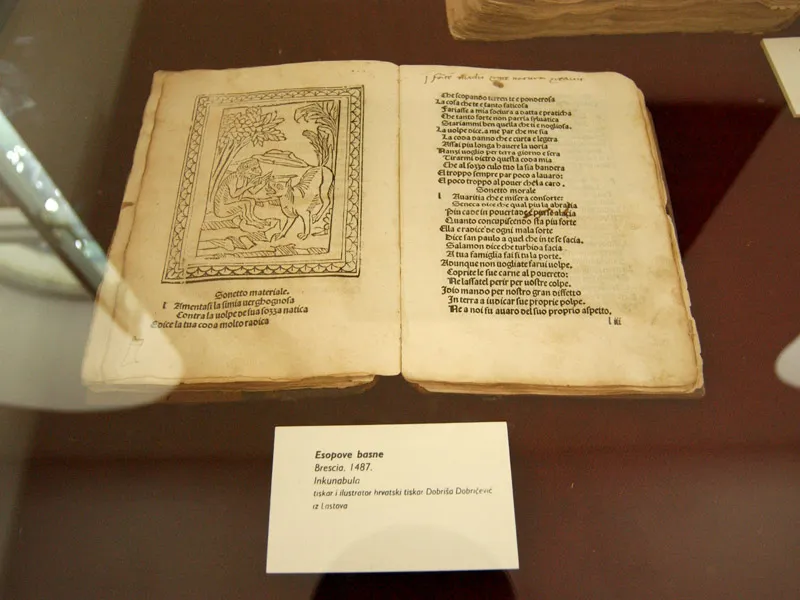 Sonetto materiale.
l Amentasi la simia uerghognosa
Contra la uolpe de sua sozza natica
Edice la tua coda molto radica
Che scopando terren te e ponderosa
La cosa che te e tanto faticosa
Fariasse a mia socura a datta e praticha
Che tanto forte non parria syluatica
Stariammi ben quella che ti e nogliosa.
La uolpe dice. a me par che me sia
La coda danno che e curta e legera
Assai piu longa hauere la uoria
Nanzi uoglio per terra giorno e sera
Tirarmi dietro questa coda mia
Che al sozzo culo tuo la sia bandera
El troppo sempre par poco a lauaro:
El poco troppo al pouer chela caro.
Sonetto morale
l Auaritia che e misera consorte:
Seneca dice che qual piu la abratia
Piu cade in pouertade
Quanto concupiscendo sta piu forte
Ella e radice de ogni mala sorte
Dice san paulo a quel che in te se sacia.
Salamon dice che turbido facia
A tua famiglia fai si tu la porte.
Adunque non uogliate far ui uolpe.
Coprite le sue carne al pouereto:
Ne lassatel perir per uostre colpe.
Idio mando per nostro gran diffetto
In terra a iudicar sue proprie polpe.
Ne a noi su auaro del suo proprio aspetto.
Esopove basne
Brescia, 1487.
Inkunabula
tiskar i ilustrator hrvatski tiskar Dobriša Dobrićević
iz Lastova